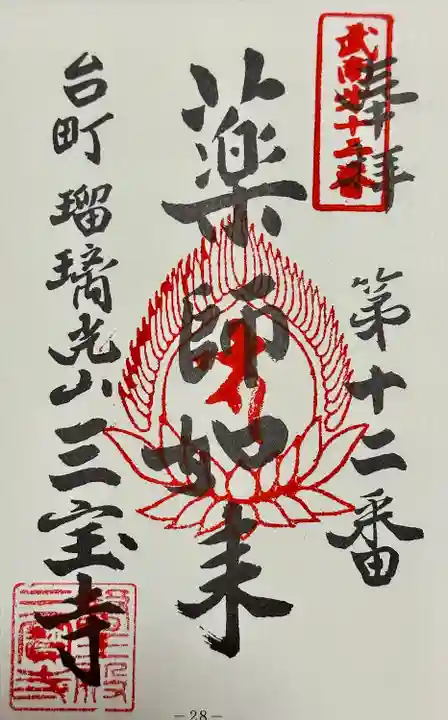 奉拝
第十二番
薬師如来
台町 瑠璃光山 三宝寺
－28－